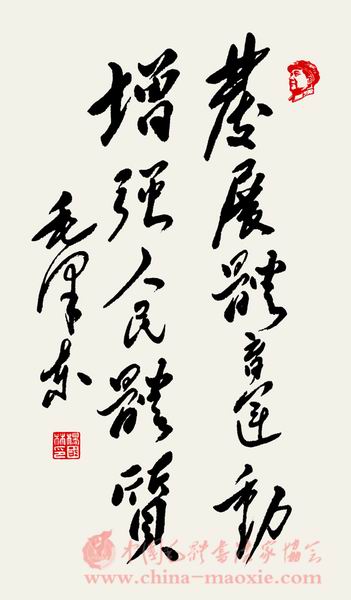 發展體育運動
增强人民體質
毛澤东
中国毛体书法家協会
www.china-maoxie.com